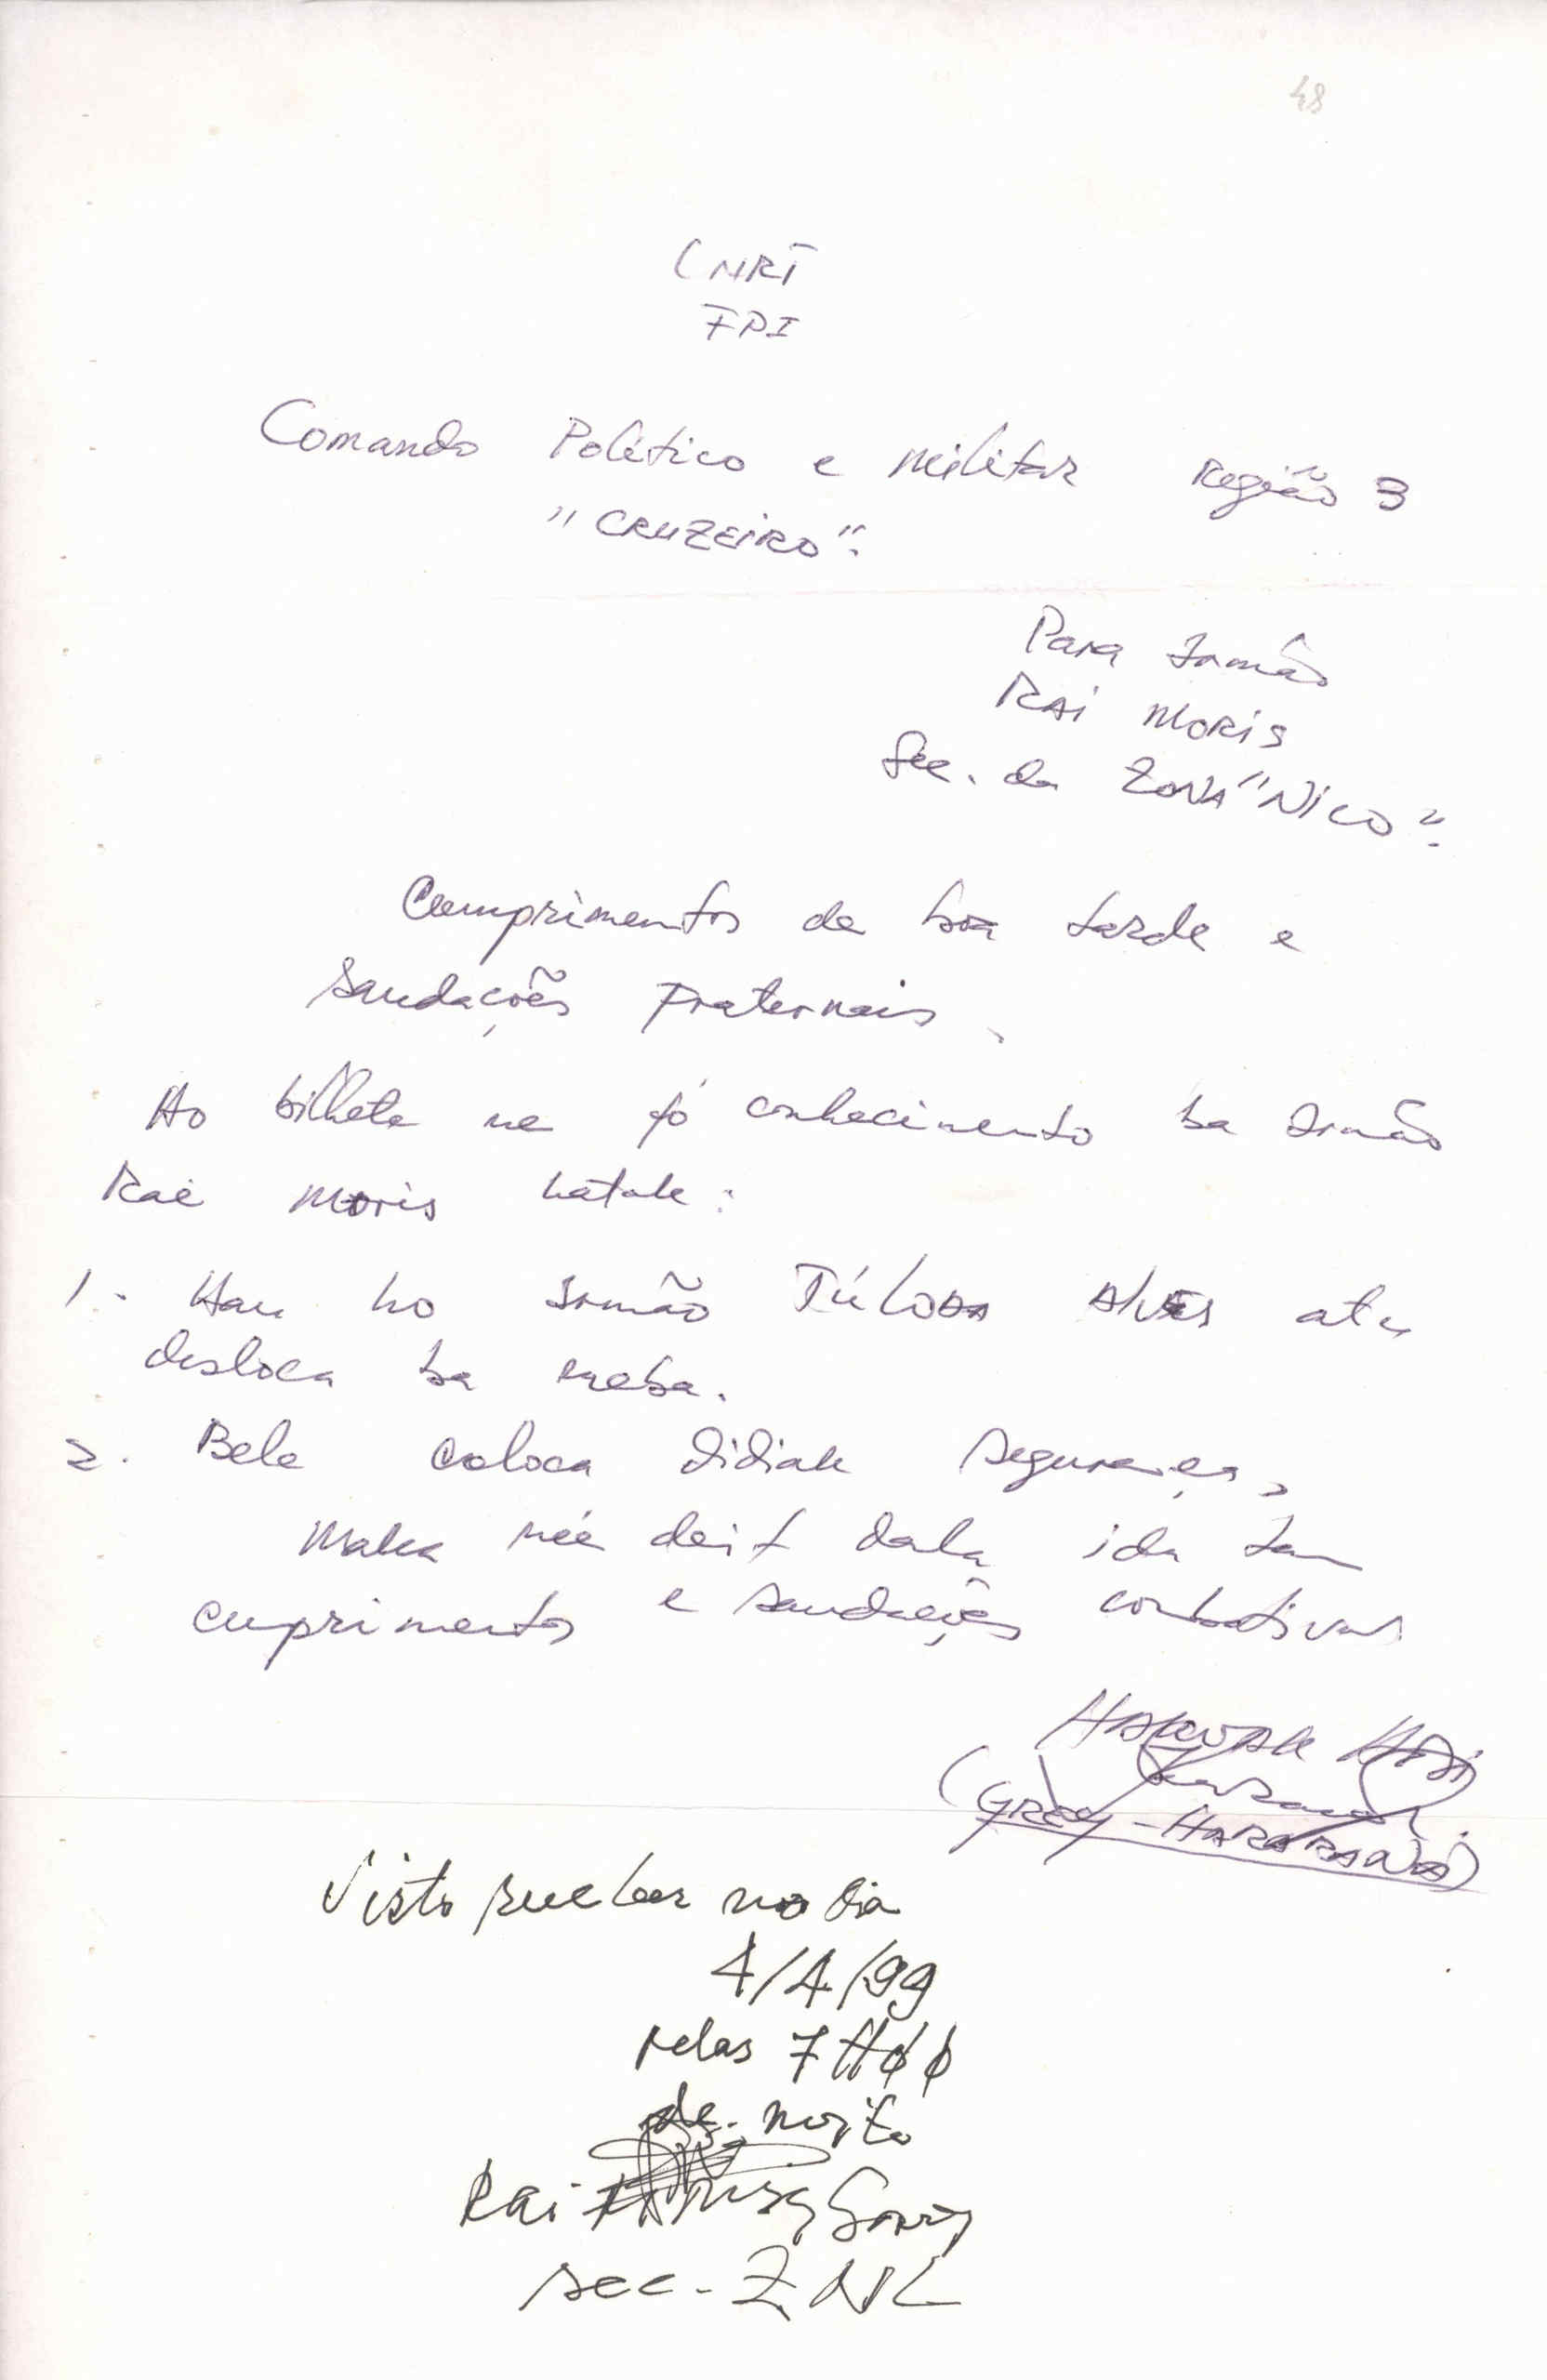 48
CNRT
FPI
Comando Político e Militar Região 3
"CRUZEIRO".
Para Irmão
RAi MORiS
Sec. da ZONA "NiCO".
Cumprimentos de boa tarde e
Saudações Fraternais
Ho bilhete ne fó conhecimento ba Irmão
Rai Moris katak:
1. Hau ho Irmão TÚLODA ALVES atu
desloca ba
2. Bele coloca didiak segurança,
Maka née deit dala ida tan
cuprimentos e saudações combativas
HAKWAK
(GREY-HARARANA)
Visto receber no dia
4/4/99
pelas 7H00
de noite
Rai
sec - ZNL